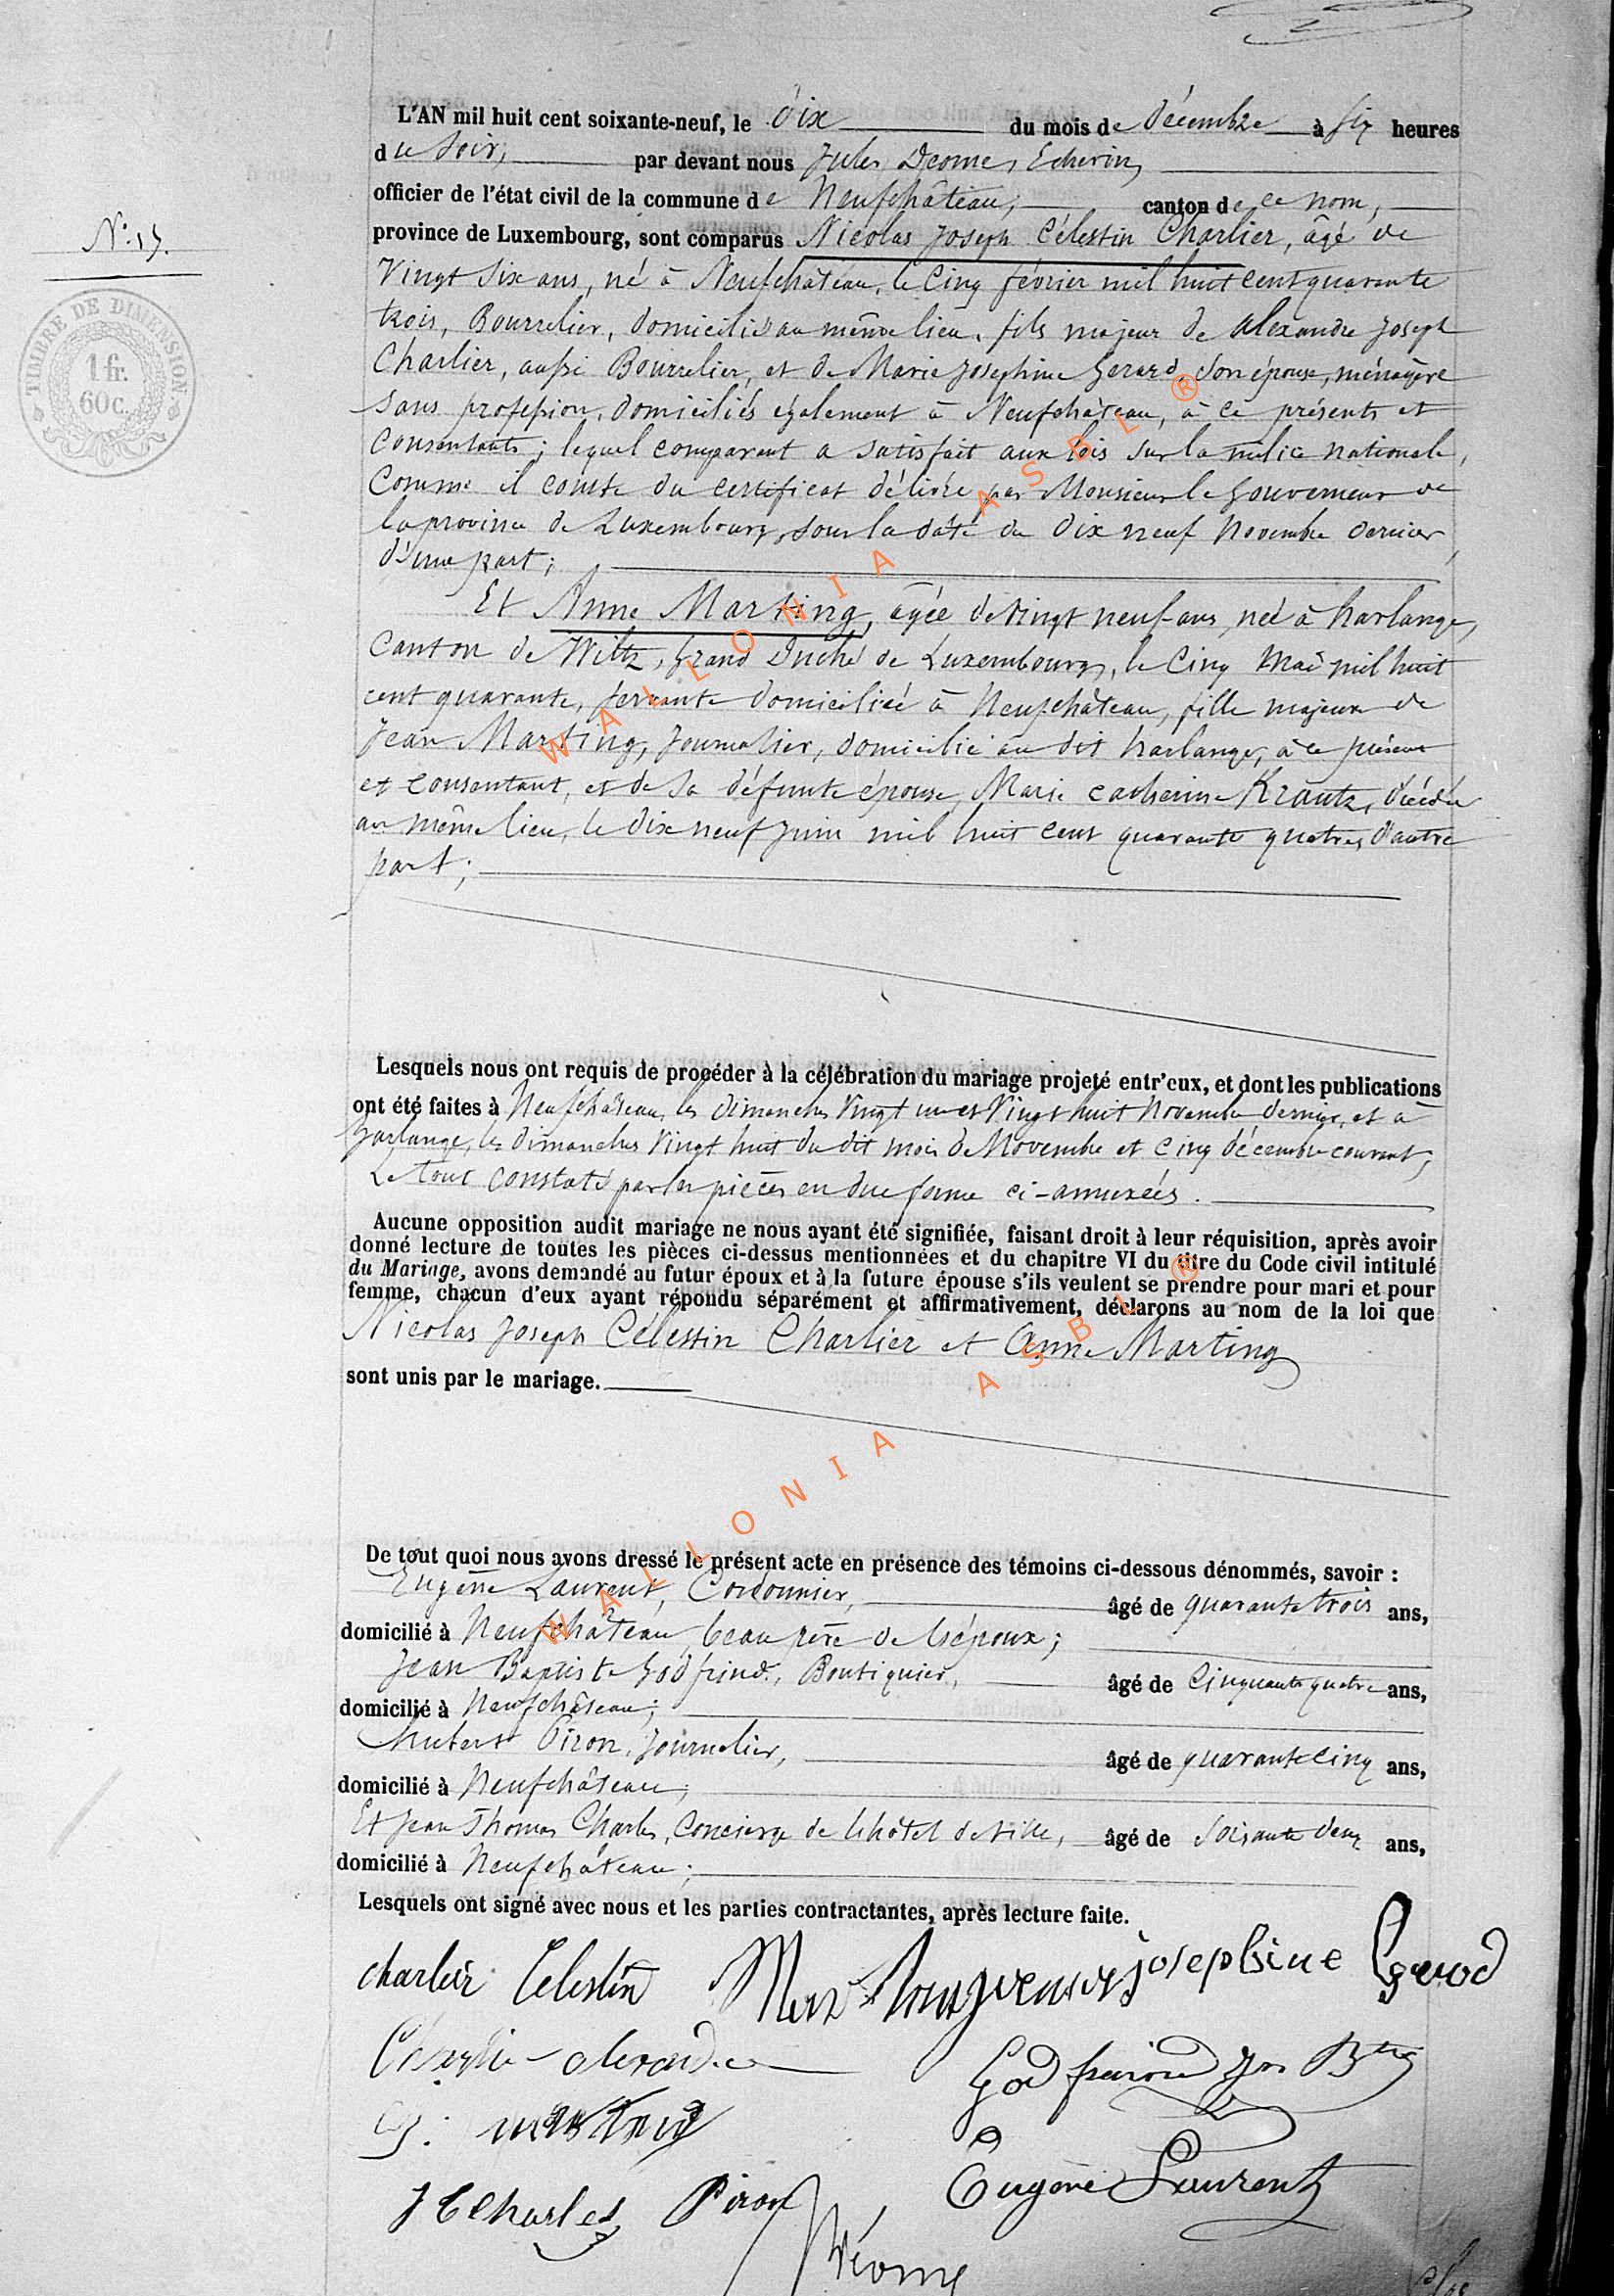 L'AN mil huit cent soixante-neuf, le dix du mois de décembre à six heures
du soir, par devant nous Jules Déome, Echevin,
officier de l'état civil de la commune de Neufchâteau, canton de ce nom,
N° 15.
province de Luxembourg, sont comparus Nicolas Joseph Célestin Charlier, âgé de
TIMBRE DE DIMENSION.
1 fr.
60 c.
Vingt six ans, né à Neufchâteau, le Cinq février mil huit cent quarante
trois, Bourrelier, domicilié au même lieu, fils majeur de Alexandre Joseph
Charlier, aussi Bourrelier, et de Marie Josephine Gerard, son épouse, ménagère
sans profession, domiciliés également à Neufchâteau, à ce présents et
consentants; lequel comparant a satisfait aux lois sur la milice nationale,
comme il conste du certificat délivré par Monsieur le Gouverneur de
la province de Luxembourg, sous la date du dix neuf Novembre dernier,
d'une part;
Et Anne Marting, agée de vingt neuf ans, née à harlange,
Canton de Wiltz, Grand Duché de Luxembourg, le Cinq Mai mil huit
cent quarante, servante domiciliée à Neufchâteau, fille majeure de
Jean Marting, Journalier, domicilié au dit harlange, à ce présent
et consentant, et de sa défunte épouse, Marie Catherine Krantz, décédée
au même lieu, le dix neuf Juin mil huit cent quarante quatre, d'autre
part;
Lesquels nous ont requis de procéder à la célébration du mariage projeté entr'eux, et dont les publications
ont été faites à Neufchâteau, les dimanches Vingt un et Vingt huit Novembre dernier, et à
harlange, les dimanches Vingt huit du dit mois de Novembre et Cinq décembre courant,
Le tout constaté par les pièces en due forme ci-annexées.
Aucune opposition audit mariage ne nous ayant été signifiée, faisant droit à leur réquisition, après avoir
donné lecture de toutes les pièces ci-dessus mentionnées et du chapitre VI du titre du Code civil intitulé
du Mariage, avons demandé au futur époux et à la future épouse s'ils veulent se prendre pour mari et pour
femme, chacun d'eux ayant répondu séparément et affirmativement, déclarons au nom de la loi que
Nicolas Joseph Célestin Charlier et Anne Marting
sont unis par le mariage.
De tout quoi nous avons dressé le présent acte en présence des témoins ci-dessous dénommés, savoir :
Eugène Laurent, Cordonnier, âgé de quarante trois ans,
domicilié à Neufchâteau, beau père de l'époux;
Jean Baptiste Godfrind, Boutiquier, âgé de Cinquante quatre ans,
domicilié à Neufchâteau;
hubert Piron, Journalier, âgé de quarante cinq ans,
domicilié à Neufchâteau;
Et Jean Thomas Charles, Concierge de l'hôtel de ville, âgé de soixante deux ans,
domicilié à Neufchâteau;
Lesquels ont signé avec nous et les parties contractantes, après lecture faite.
charlier Celestin josephine Gerard
Charlier alexandre Godfrind Jn Bte
marting
Eugène Laurent
J T Charles Piron
Déome
WALLONIA ASBL ®
WALLONIA ASBL ®